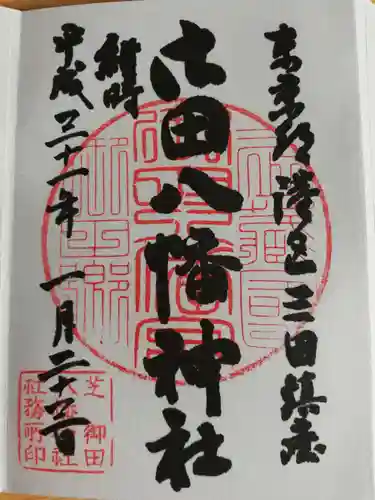 東京都港区三田鎮座
御田八幡神社
参拝
平成三十一年一月二十六日
芝御田
八幡神社
社務所印